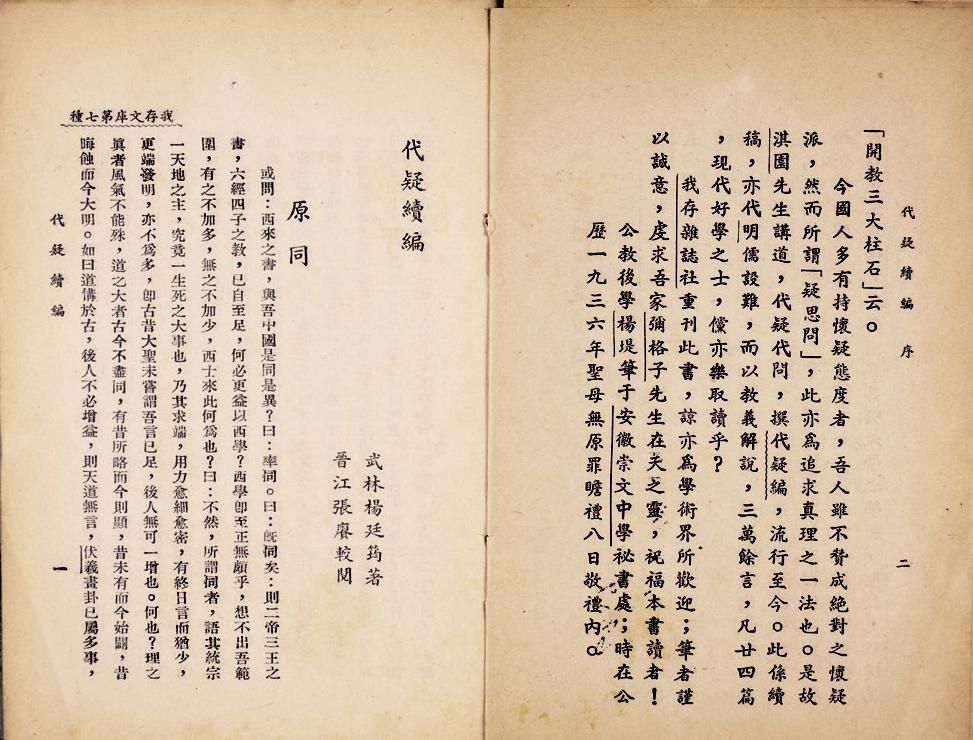 代疑續編　序
二
「開教三大柱石」云。
今國人多有持懷疑態度者，吾人雖不贊成絕對之懷疑
派，然而所謂「疑思問」，此亦爲追求真理之一法也。是故
淇園先生講道，代疑代問，撰代疑編，流行至今。此係續
稿，亦代明儒設難，而以教義解說，三萬餘言，凡廿四篇
，現代好學之士，儻亦樂取讀乎？
我存雜誌社重刊此書，諒亦爲學術界所歡迎；筆者謹
以誠意，虔求吾家彌格子先生在天之靈，祝福本書讀者！
公教後學楊堤筆于安徽崇文中學祕書處；時在公
歷一九三六年聖母無原罪瞻禮八日敬禮內。
代疑續編
武林楊廷筠著
晉江張賡較閱
原同
或問：西來之書，與吾中國是同是異？曰：率同。曰：旣同矣：則二帝三王之
書，六經四子之教，已自至足，何必更益以西學？西學卽至正無頗乎，想不出吾範
圍，有之不加多，無之不加少，西士來此何爲也？曰：不然，所謂同者，語其統宗
一天地之主，究竟一生死之大事也，乃其求端，用力愈細愈密，有終日言而猶少，
更端發明，亦不爲多，卽古昔大聖未嘗謂吾言已足，後人無可一增也。何也？理之
眞者風氣不能殊，道之大者古今不盡同，有昔所略而今則顯，昔未有而今始闢，昔
晦蝕而今大明。如曰道備於古，後人不必增益，則天道無言，伏羲畫卦已屬多事，
代疑續編
一
我存文庫第七種